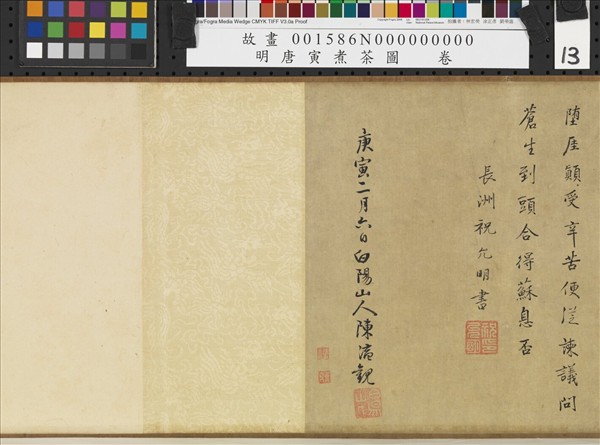 Fogra Media Wedge CMYK TIFF V3.0a Proof
故畫 001586N000000000
明唐寅煮茶圖 卷
13
墮厓顛受辛苦便從諫議問
蒼生到頭合得蘇息否
長洲祝允明書
庚寅二月六日白陽山人陳淳觀